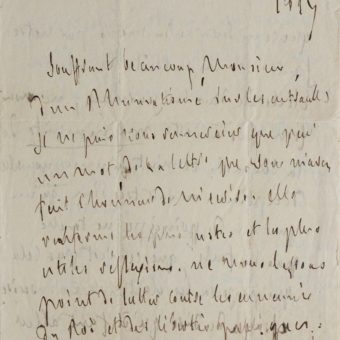 Souffrant beaucoup, Monsieur,
d'un Rhumatisme sur les entrailles,
je ne puis vous remercier que par
un mot de la lettre que vous m'avez
fait l'honneur de m'écrire. elle
renferme les plus justes et les plus
utiles réflexions. ne nous lassons
point de lutter contre les ennemis
du Roi et des libertés publiques.